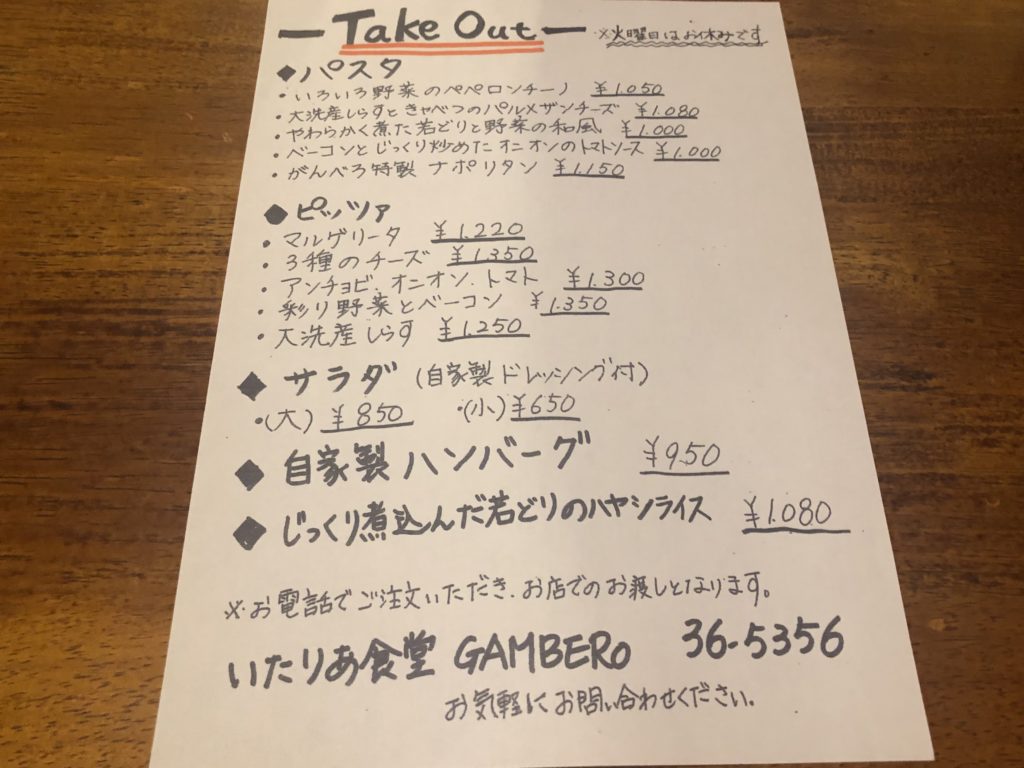 Take Out ※火曜日はお休みです
◆パスタ
・いろいろ野菜のペペロンチーノ ¥1.050
・大洗産しらすときゃべつのパルメザンチーズ ¥1.080
・やわらかく煮た若どりと野菜の和風 ¥1.000
・ベーコンとじっくり炒めたオニオンのトマトソース ¥1.000
・がんべろ特製 ナポリタン ¥1.150
◆ピッツァ
・マルゲリータ ¥1.220
・3種のチーズ ¥1.350
・アンチョビ.オニオン.トマト ¥1.300
・彩り野菜とベーコン ¥1.350
・大洗産しらす ¥1.250
◆サラダ (自家製ドレッシング付)
・(大) ¥850 ・(小) ¥650
◆自家製ハンバーグ ¥950
◆じっくり煮込んだ若どりのハヤシライス ¥1.080
※お電話でご注文いただき.お店でのお渡しとなります。
いたりあ食堂 GAMBERo 36-5356
お気軽にお問い合わせください.